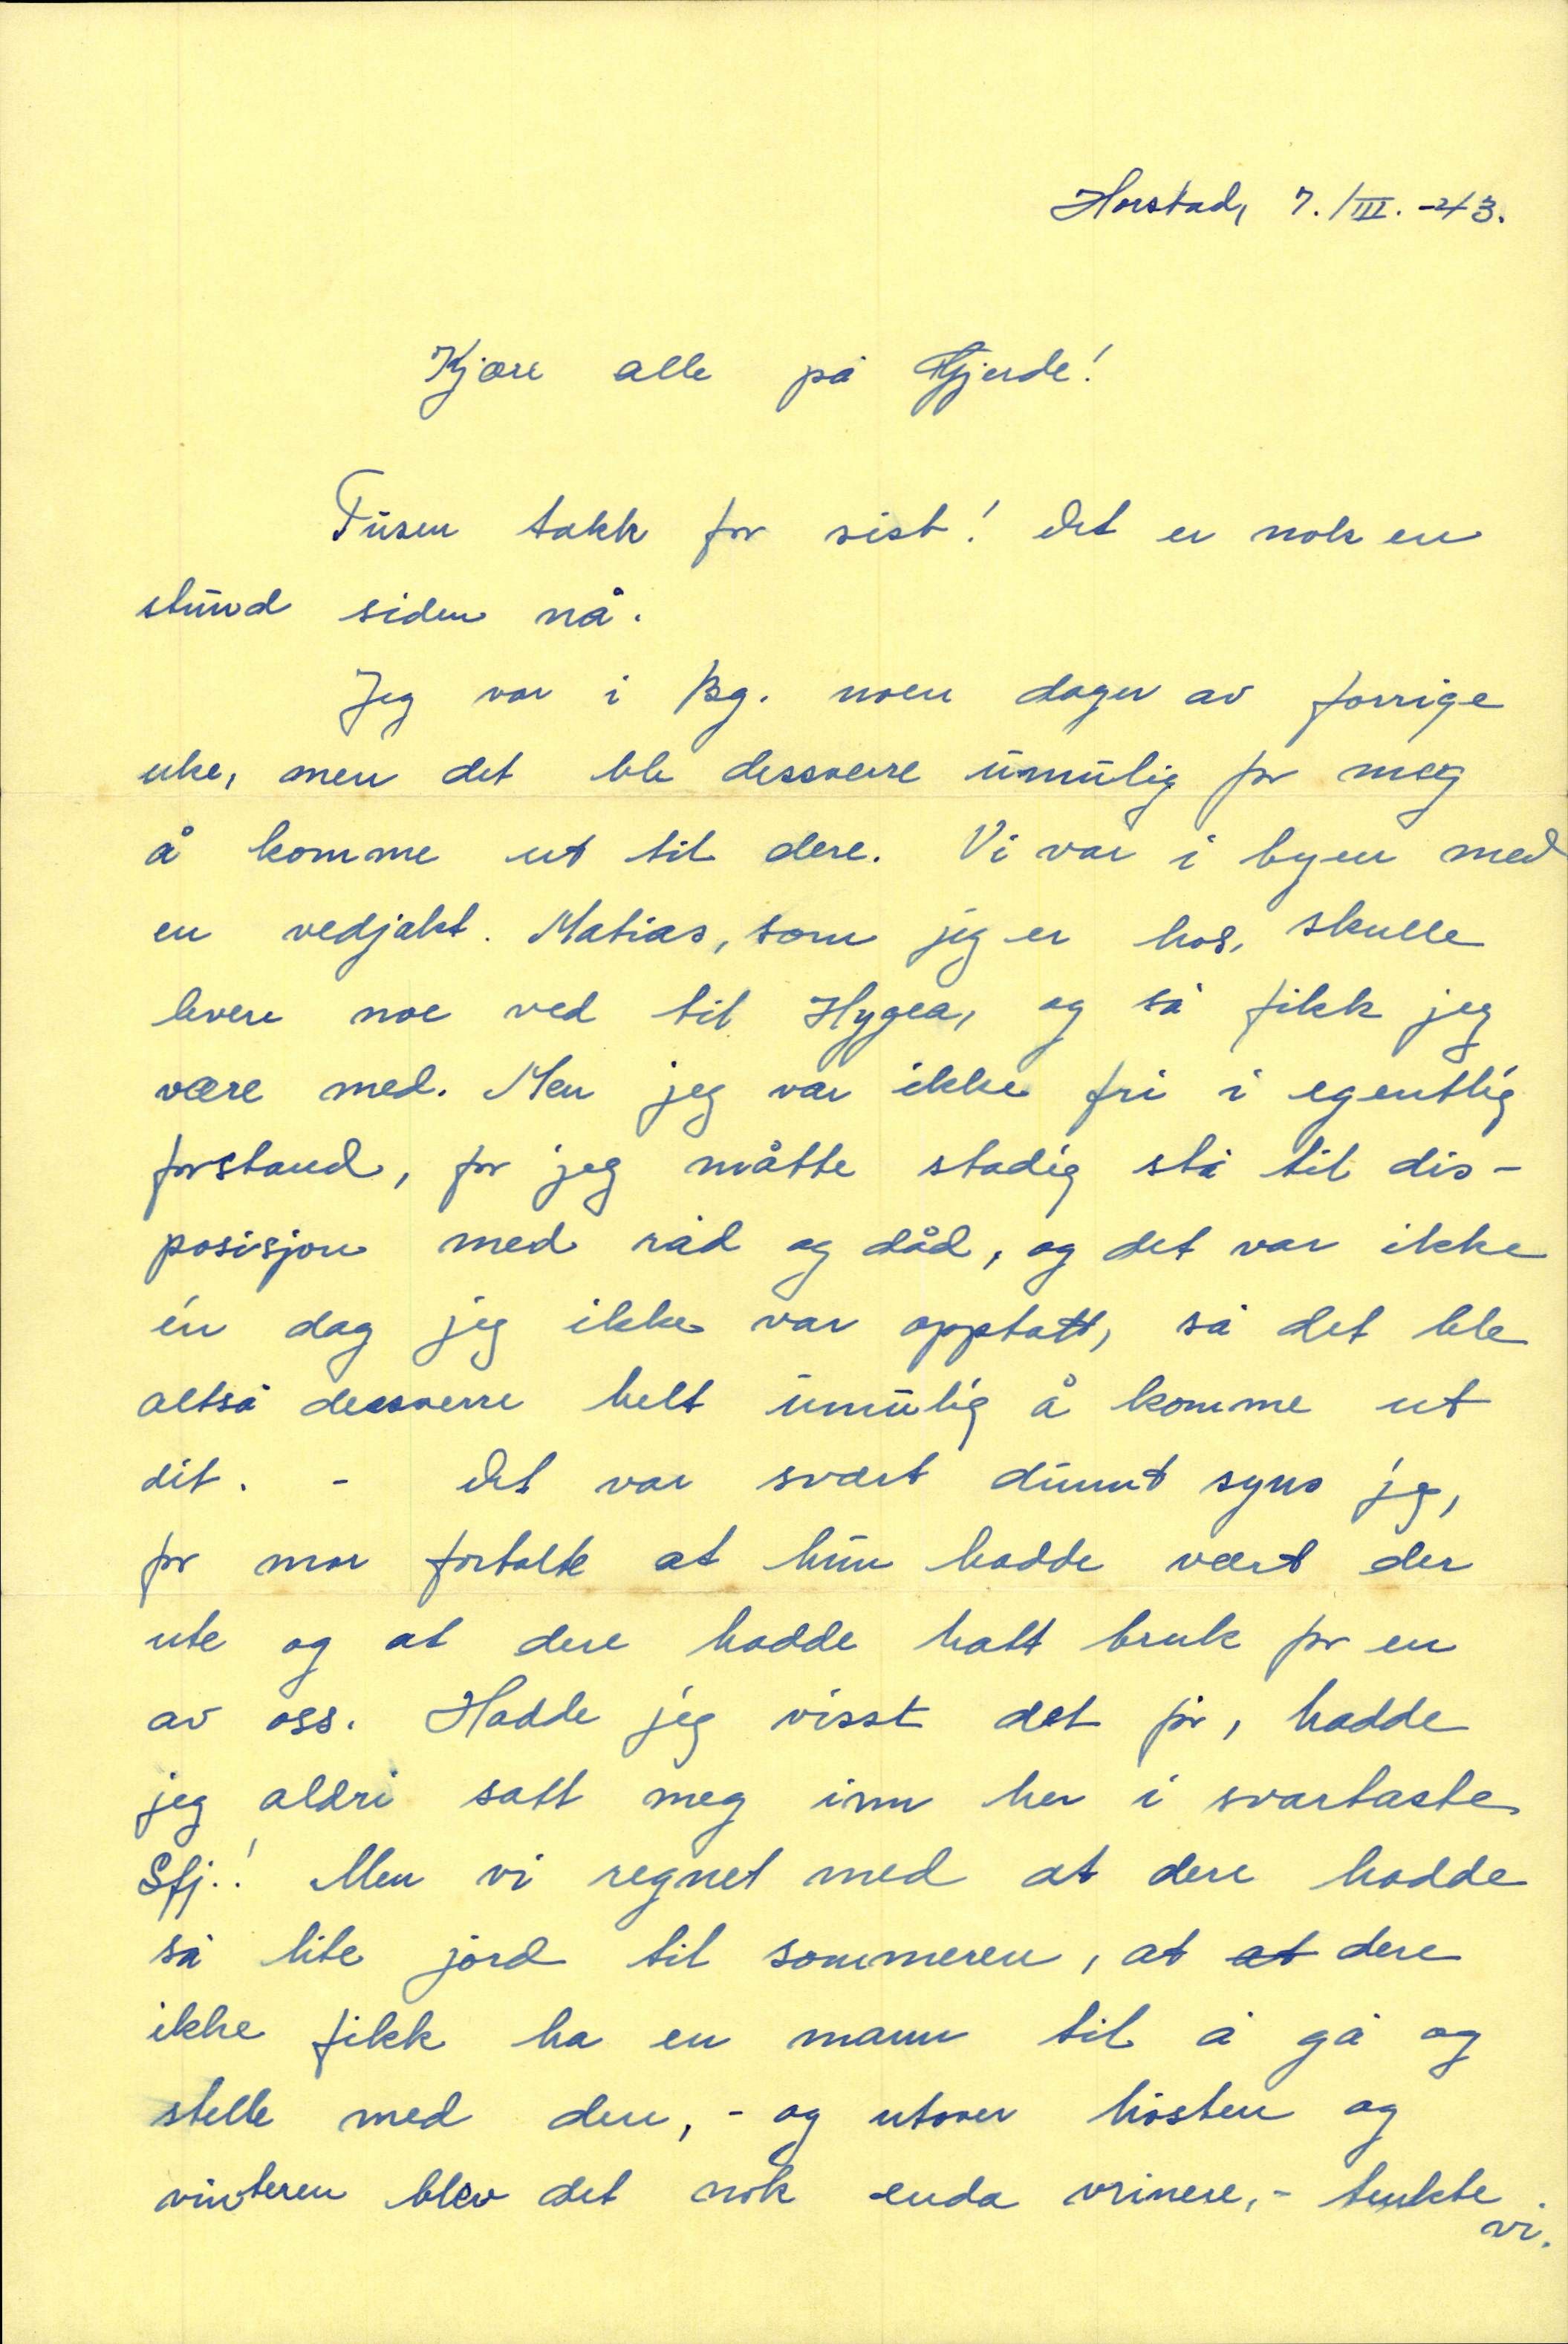 Horstad, 7./III. -43.
Kjære alle på Gjerde!
Tusen takk for sist! Det er nok en
stund siden nå.
Jeg var i Bg. noen dager av forrige
uke, men det ble dessverre umulig for meg
å komme ut til dere. Vi var i byen med
en vedjakt. Matias, som jeg er hos, skulle
levere noe ved til Hygea, og så fikk jeg
være med. Men jeg var ikke fri i egentlig
forstand, for jeg måtte stadig stå til dis-
posisjon med råd og dåd, og det var ikke
én dag jeg ikke var opptatt, så det ble
altså dessverre helt umulig å komme ut
dit. - Det var svært dumt syns jeg,
for mor fortalte at hun hadde vært der
ute og at dere hadde hatt bruk for en
av oss. Hadde jeg visst det før, hadde
jeg aldri satt meg inn her i svartaste
Sfj.! Men vi regnet med at dere hadde
så lite jord til sommeren, at at dere
ikke fikk ha en mann til å gå og
stelle med den, - og utover høsten og
vinteren blev det nok enda vrinere, - tenkte
vi.